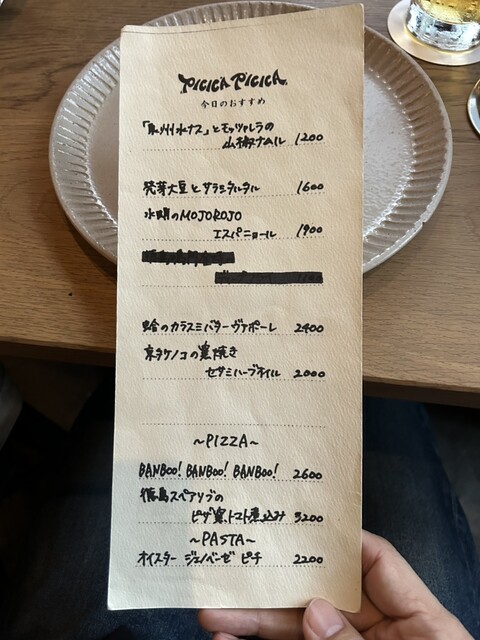 PICICA PICICA
今日のおすすめ
「泉州水ナス」とモッツァレラの
山椒ナムル 1200
発芽大豆とサラミタルタル 1600
水明のMOJOROJO
エスパニョール 1900
蛤のカラスミバターヴァポーレ 2400
京タケノコの窯焼き
セサミハーブオイル 2000
~PIZZA~
BANBOO! BANBOO! BANBOO! 2600
徳島スペアリブの
ピザ窯、トマト煮込み 3200
~PASTA~
オイスター ジェノベーゼ ピチ 2200